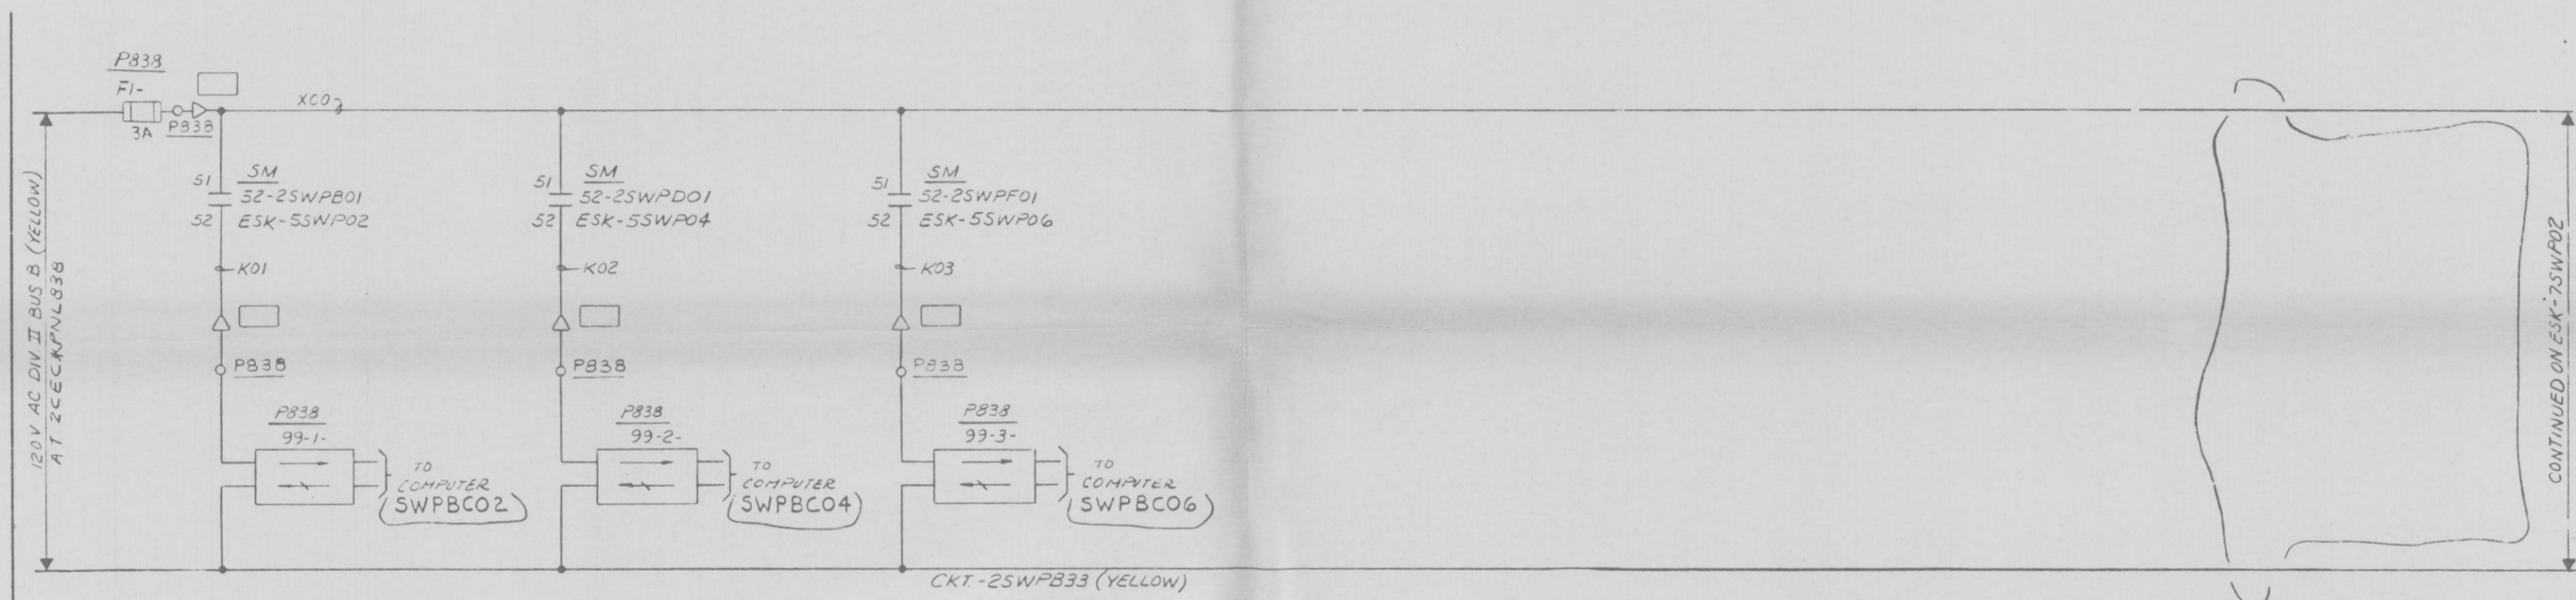 P838
F1-
3A
P838
XC02
120V AC DIV II BUS B (YELLOW)
AT 2CECKPNL838
51
SM
52-2SWPB01
52
ESK-5SWP02
K01
P838
P838
99-1-
TO
COMPUTER
SWPBC02
51
SM
52-2SWPD01
52
ESK-5SWP04
K02
P838
P838
99-2-
TO
COMPUTER
SWPBC04
51
SM
52-2SWPF01
52
ESK-5SWP06
K03
P838
P838
99-3-
TO
COMPUTER
SWPBC06
CKT.-2SWPB33 (YELLOW)
CONTINUED ON ESK-7SWP02